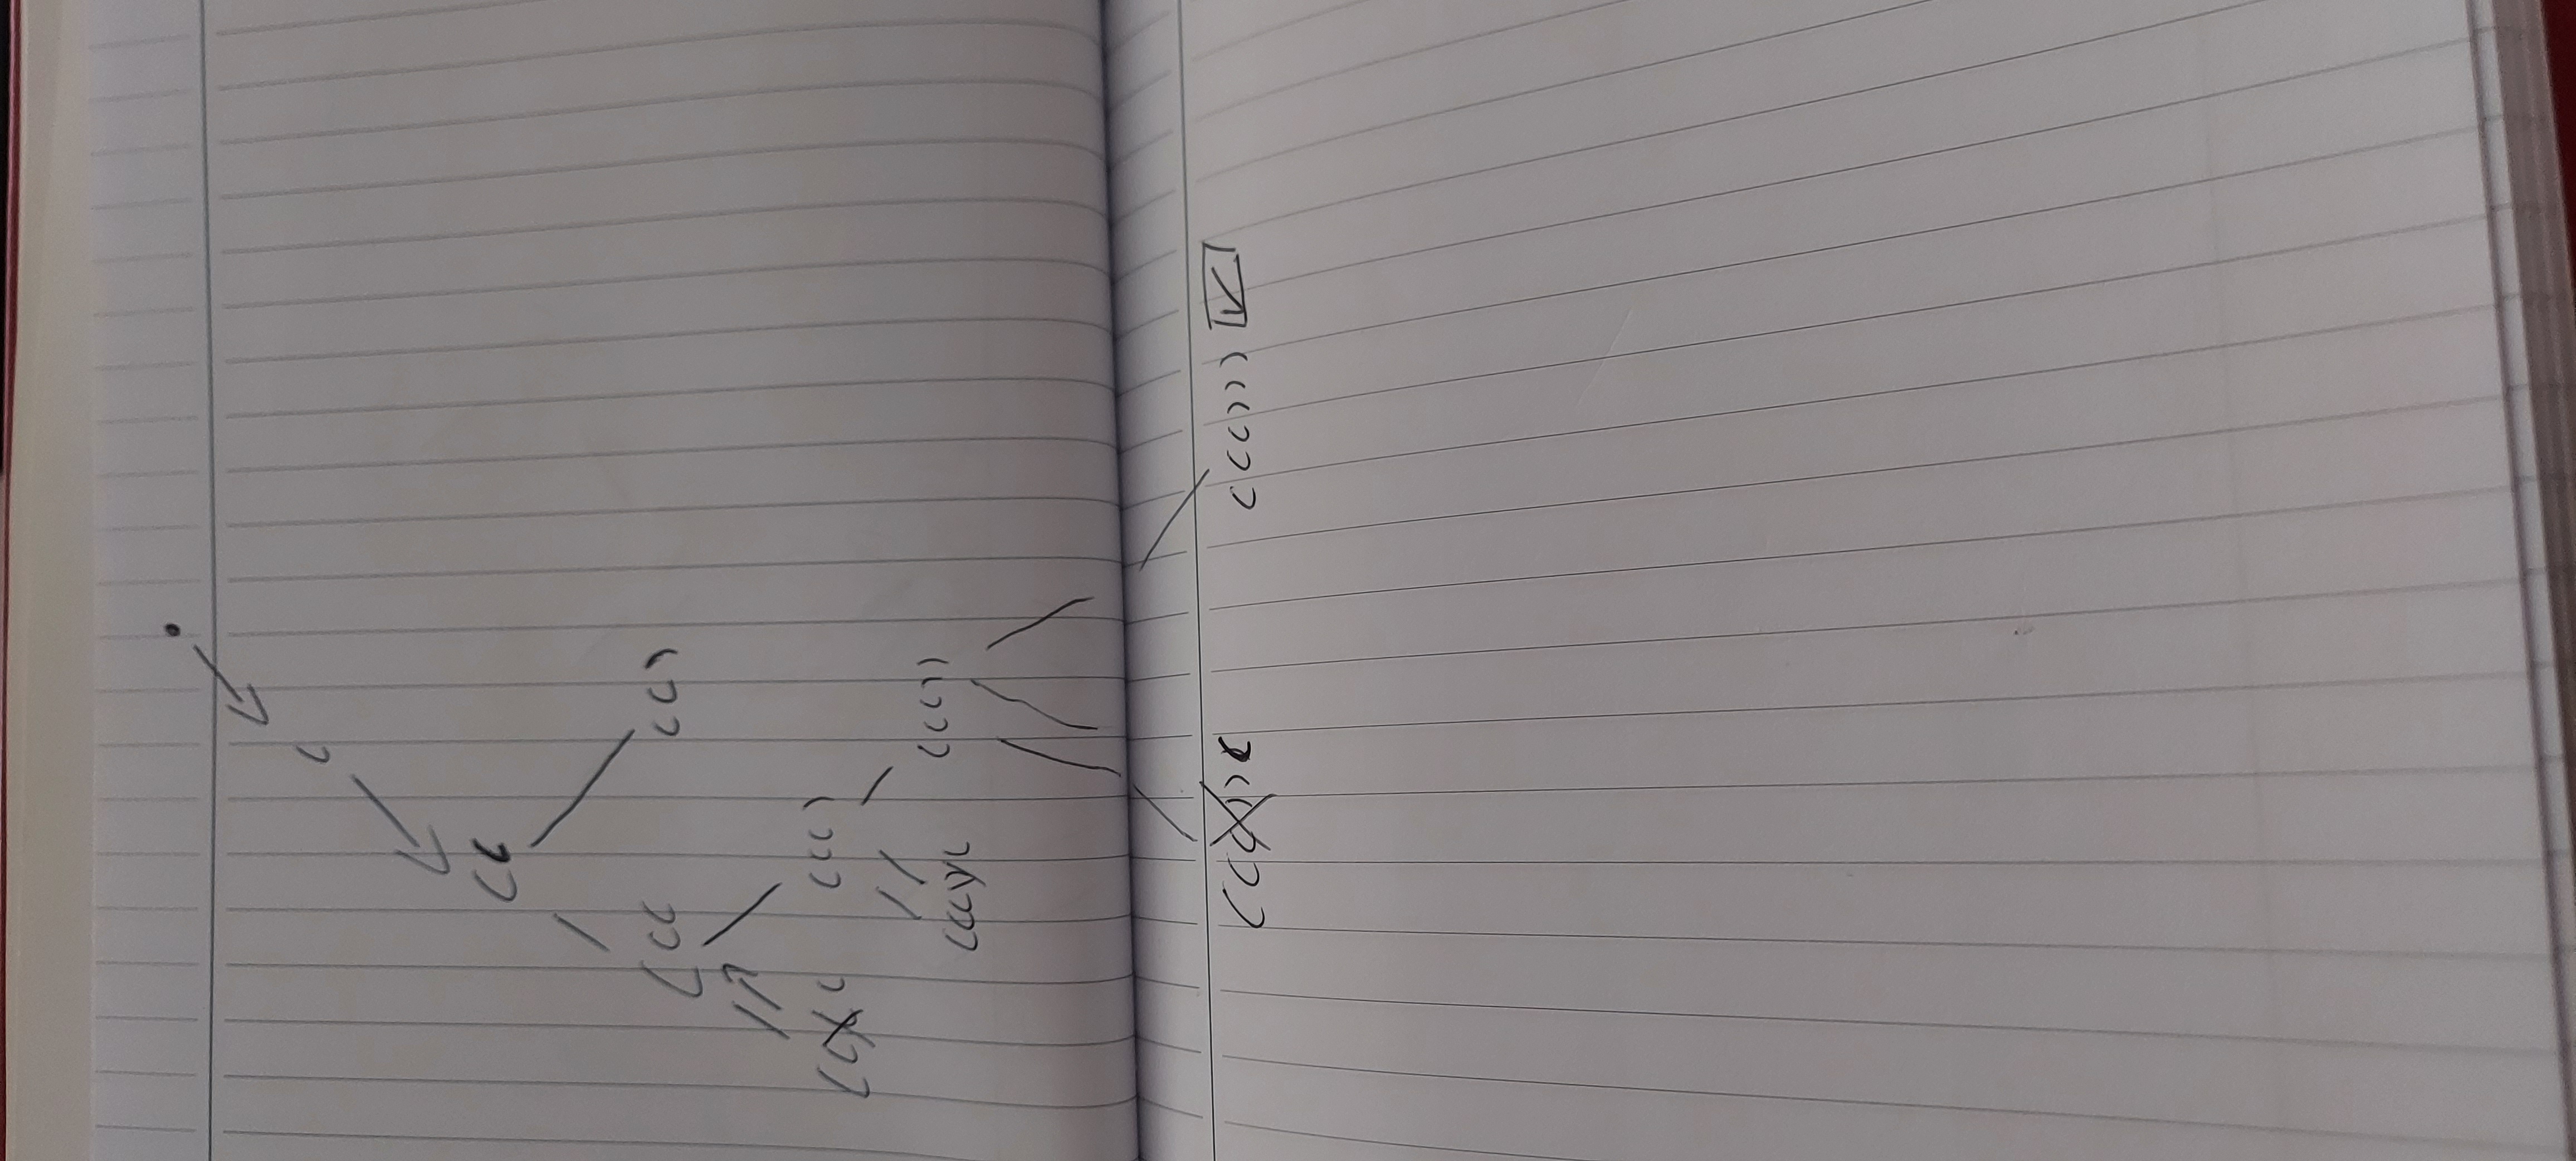 (
((
(((
(()
((((
((()
((()(
((())
((())(
((()))